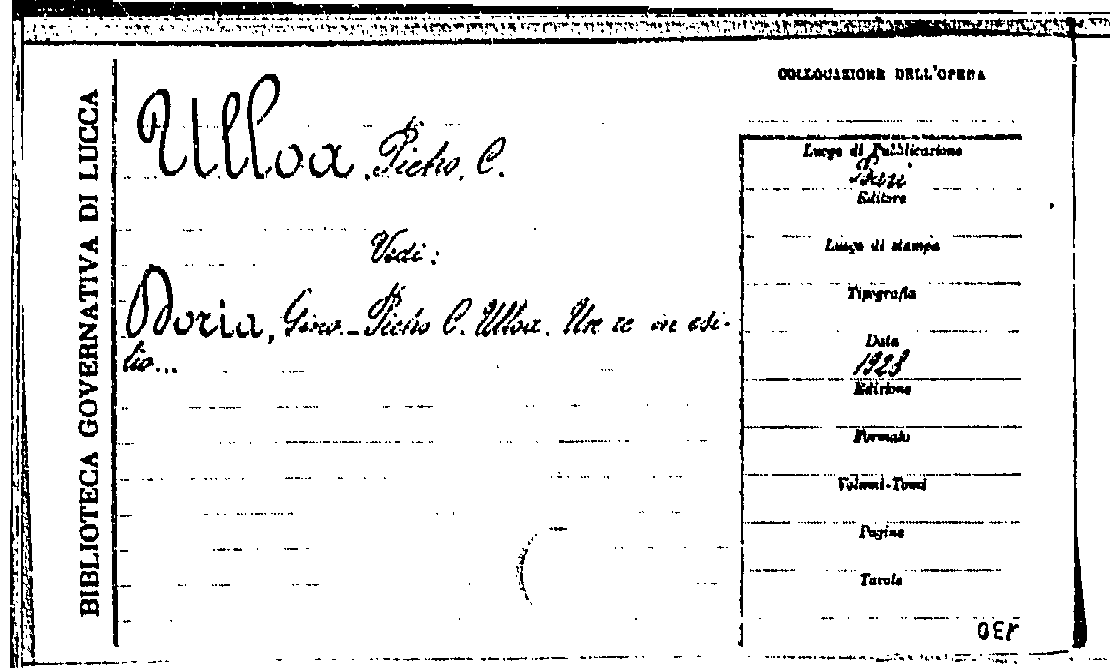 BIBLIOTECA GOVERNATIVA DI LUCCA
COLLOCAZIONE DELL'OPERA
Ulloa, Pietro, C.
Vedi:
Doria, Gino - Pietro C. Ulloa. Un re in esi-
lio...
Luogo di Pubblicazione
Bari
Editore
Luogo di stampa
Tipografia
Data
1928
Edizione
Formato
Volumi-Tomi
Pagine
Tavole